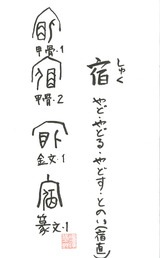 宿
しゅく
やど・やどる・やどす・とのい(宿直)
甲骨・1
甲骨・2
金文・1
篆文・1